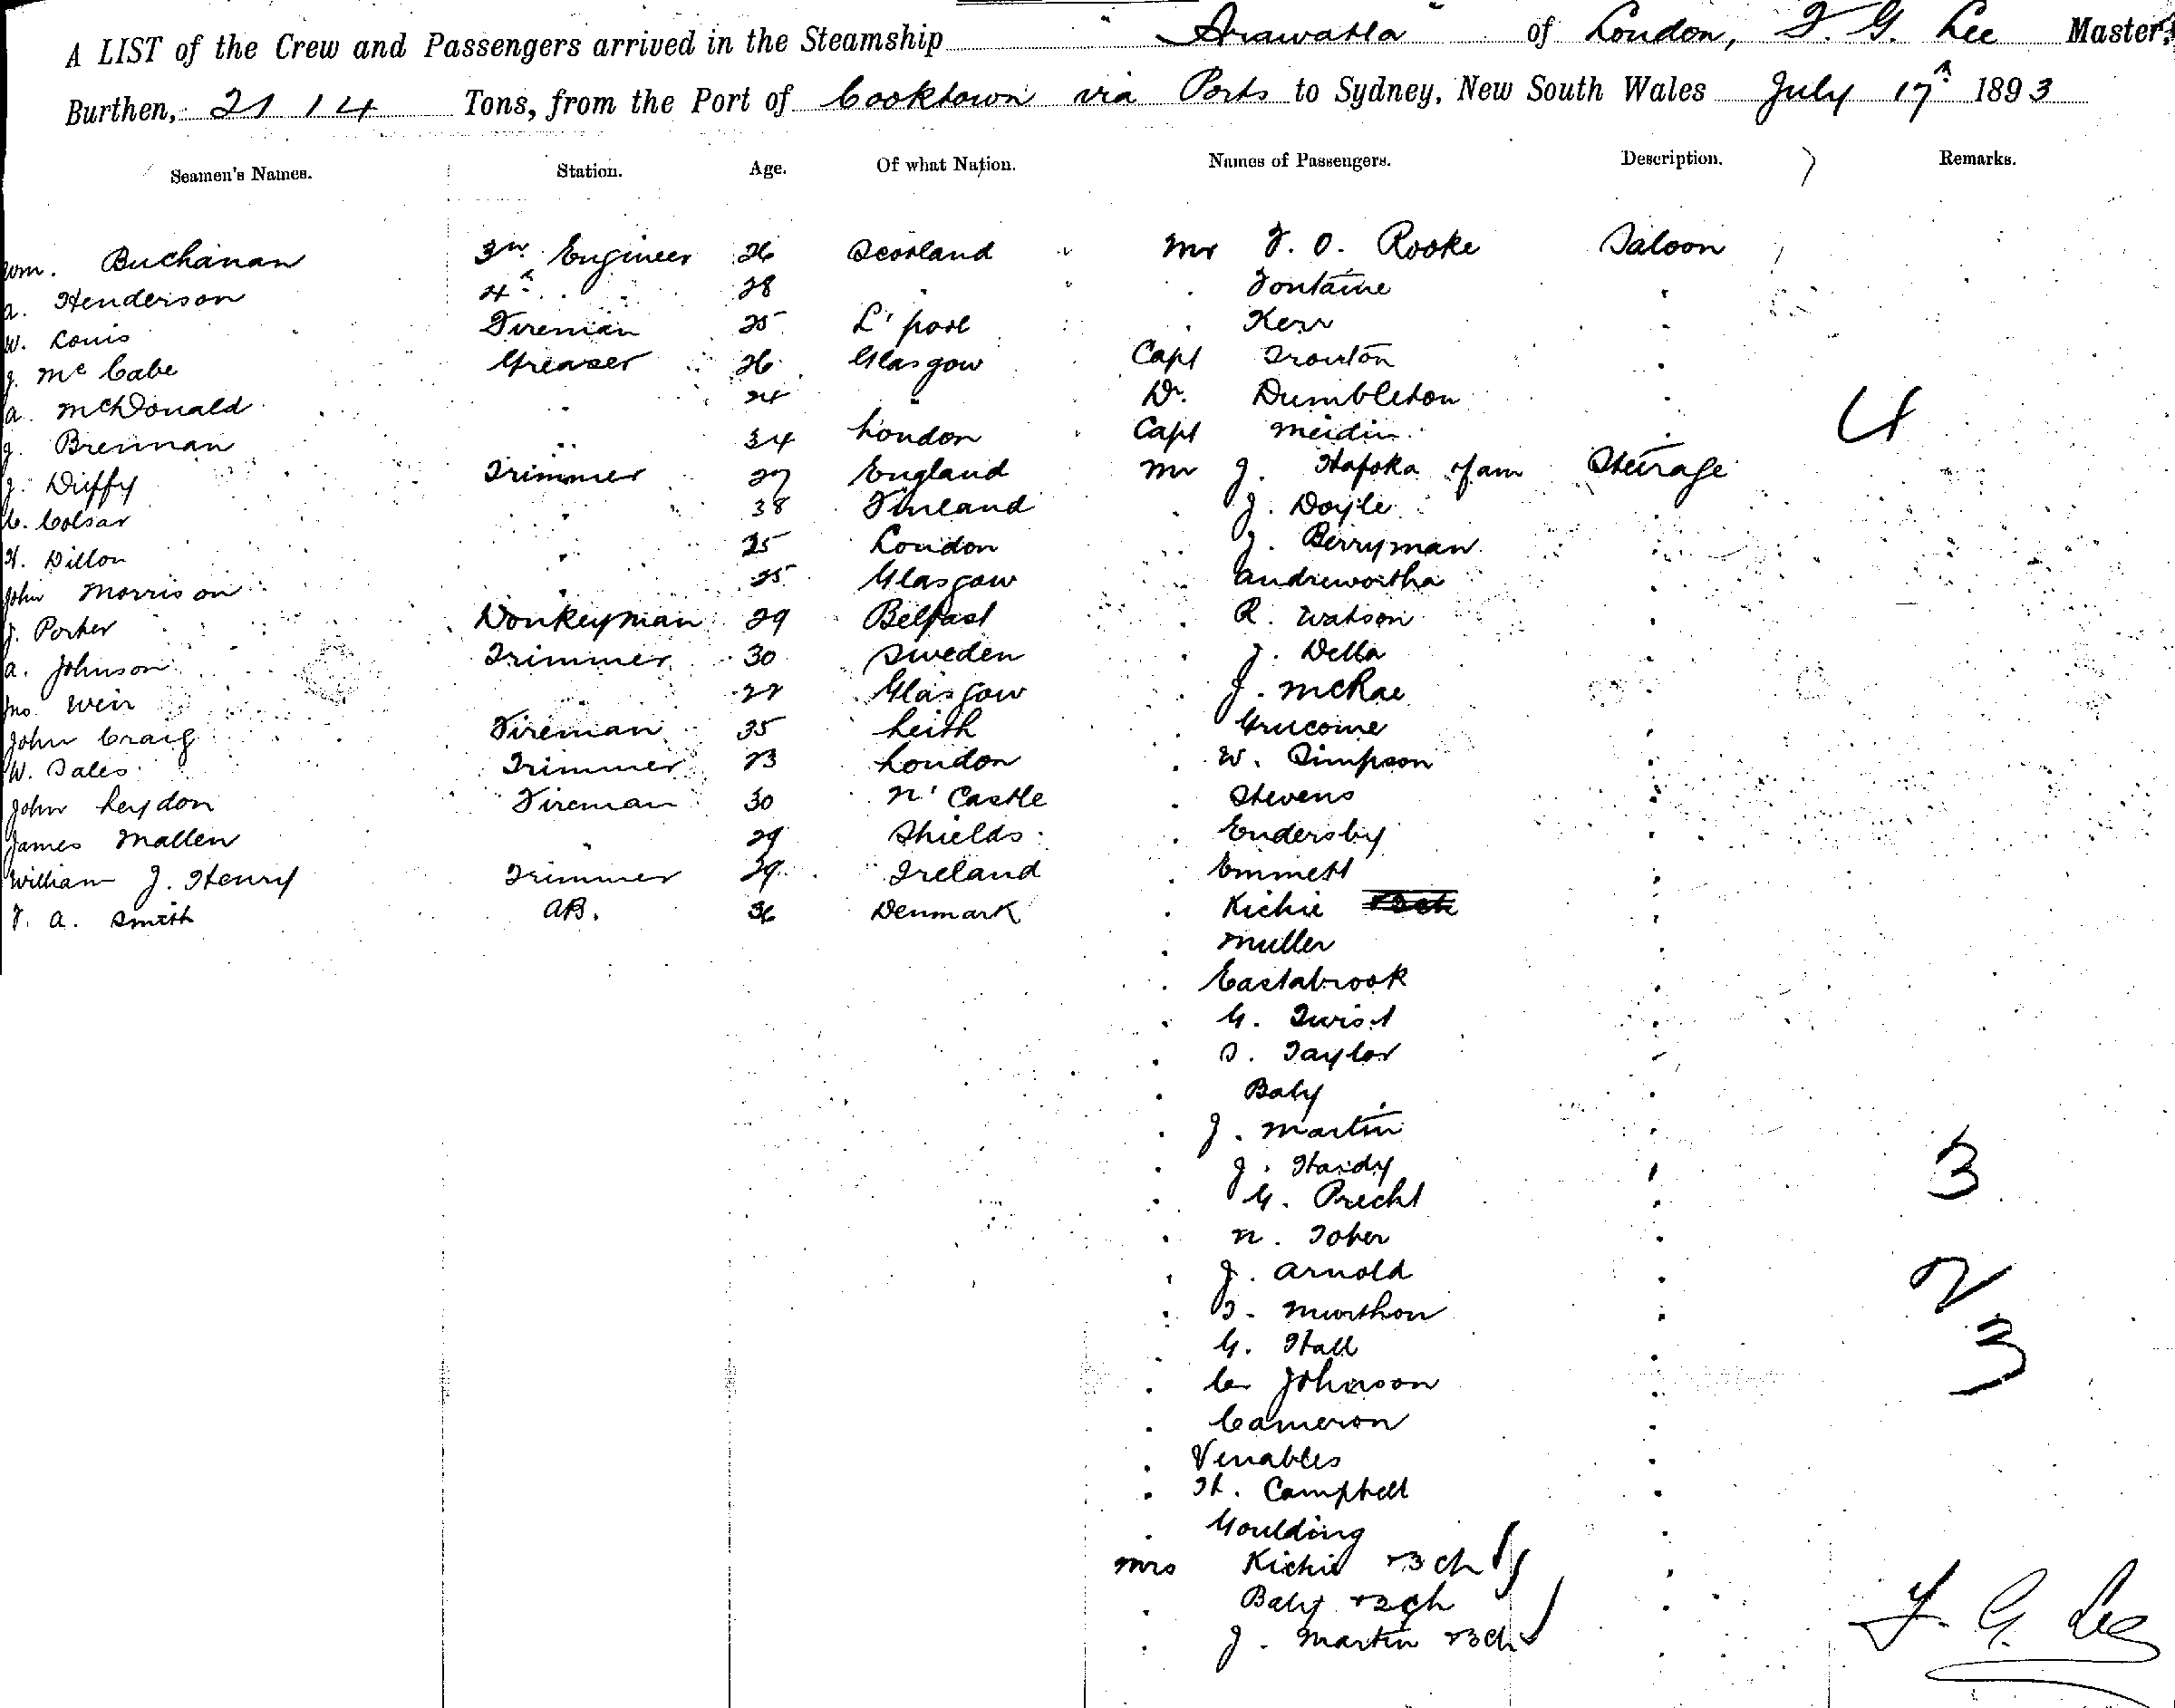 A LIST of the Crew and Passengers arrived in the Steamship "Arawatta" of London, F. G. Lee Master,
Burthen, 2114 Tons, from the Port of Cooktown via Ports to Sydney, New South Wales July 17th 1893
Seamen's Names. Station. Age. Of what Nation. Names of Passengers. Description. Remarks.
Wm. Buchanan 3rd Engineer 26 Scotland Mr F. O. Rooke Saloon
A. Henderson 4th " 28 " " Fontaine "
W. Louis Fireman 25 L'pool " Kerr "
J. McCabe Greaser 26 Glasgow Capt Trouton "
A. McDonald " 24 " Dr. Dumbleton "
J. Brennan " 34 London Capt "
J. Duffy Trimmer 27 England Mr J. & fam Steerage
C. Colsar " 38 Finland " J. Doyle "
H. Dillon " 25 London " J. Berryman "
John Morrison " 25 Glasgow " Andrewartha "
J. Porter Donkeyman 29 Belfast " R. Watson "
A. Johnson Trimmer 30 Sweden " J. Della "
Jno Weir 22 Glasgow " J. McRae "
John Craig Fireman 35 Leith " "
W. Sales Trimmer 23 London " W. Simpson "
John Leydon Fireman 30 N'Castle " Stevens "
James Mallen " 29 Shields " Endersby "
William J. Henry Trimmer 29 Ireland " Emmett "
F. A. Smith AB. 36 Denmark " Kichie "
" Muller "
" Eastabrook "
" G. Twist "
" S. Taylor "
" Baly "
" J. Martin "
" J. Hardy " 3
" G. Precht "
" N. Tober "
" J. Arnold " 2
" "
" G. Hall " 3
" C. Johnson "
" Cameron "
" Venables "
" H. Campbell "
" Goulding "
Mrs Kichie & 3 ch "
" Baly & 2 ch "
" J. Martin & 3 ch "
F. G. Lee